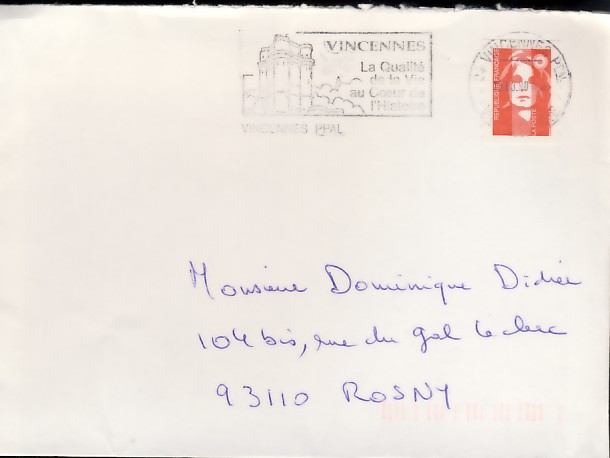 VINCENNES
La Qualité
de la Vie
au Cœur de
l'Histoire
VINCENNES PPAL
VINCENNES PPAL
REPUBLIQUE FRANÇAISE
LA POSTE
Monsieur Dominique Didier
104 bis, rue du gal Leclerc
93110 ROSNY